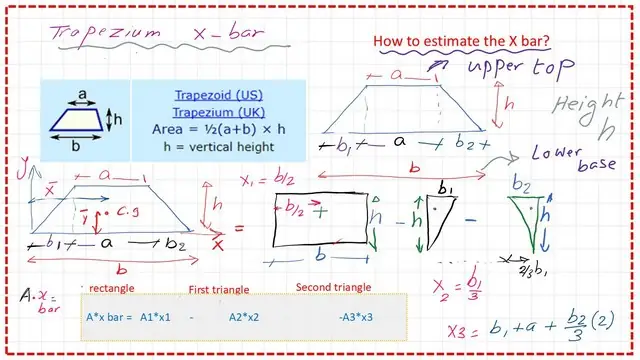 Trapezium x-bar
How to estimate the X bar?
upper top
a
h
b
Trapezoid (US)
Trapezium (UK)
Area = ½(a+b) × h
h = vertical height
a
h
b1 a b2
b
Height
h
Lower
base
y
x̄
a
ȳ c.g
h
x̄
b1 a b2
b
x1 = b/2
=
b/2 +
h
b
-
b1
h
-
b2
h
2/3 b1
A. x bar =
rectangle First triangle Second triangle
A*x bar = A1*x1 - A2*x2 -A3*x3
x2 = b1/3
x3 = b1 + a + b2/3 (2)